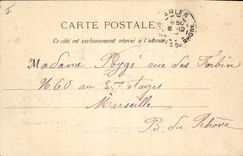 CARTE POSTALE
Ce côté est exclusivement réservé à l'adresse
ARLES
DU RHONE
Madame Poggi rue des Forbin
N 60 au 3me étages
Marseille
B. du Rhône